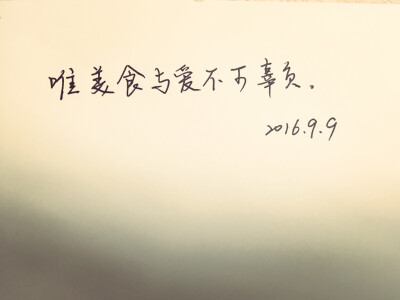 唯美食与爱不可辜负。
2016.9.9